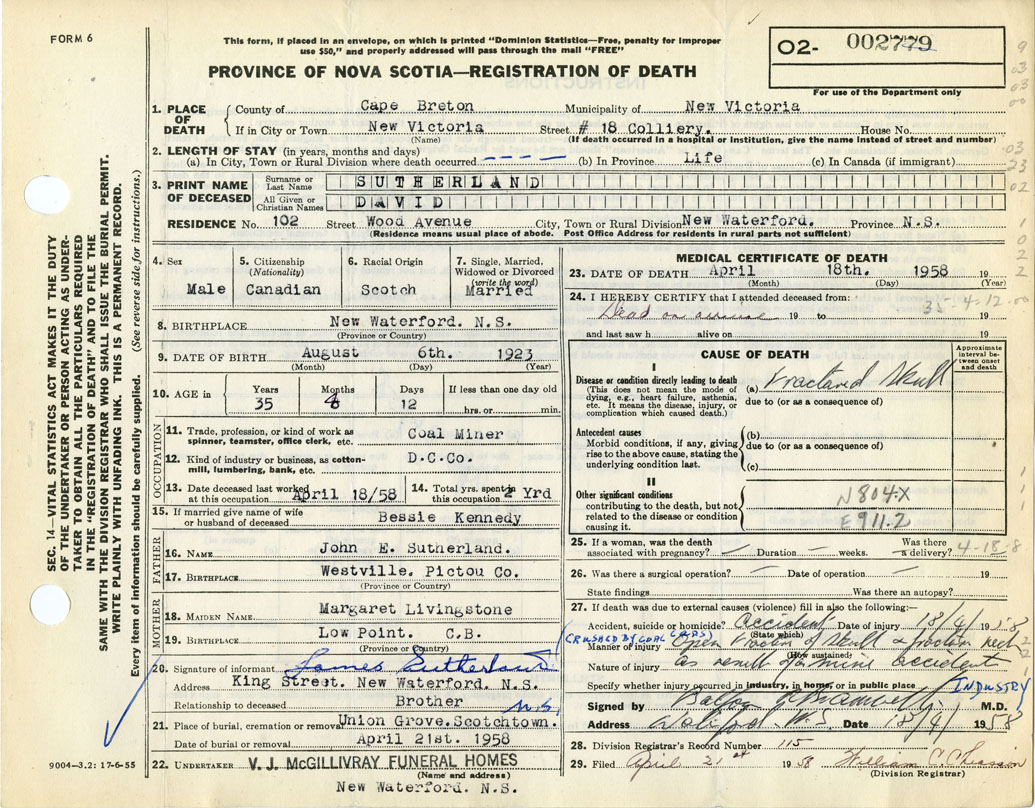 FORM 6
This form, if placed in an envelope, on which is printed "Dominion Statistics—Free, penalty for improper
use $50," and properly addressed will pass through the mail "FREE"
PROVINCE OF NOVA SCOTIA—REGISTRATION OF DEATH
02- 002779
For use of the Department only
SEC. 14—VITAL STATISTICS ACT MAKES IT THE DUTY
OF THE UNDERTAKER OR PERSON ACTING AS UNDER-
TAKER TO OBTAIN ALL THE PARTICULARS REQUIRED
IN THE "REGISTRATION OF DEATH" AND TO FILE THE
SAME WITH THE DIVISION REGISTRAR WHO SHALL ISSUE THE BURIAL PERMIT.
WRITE PLAINLY WITH UNFADING INK. THIS IS A PERMANENT RECORD.
Every item of information should be carefully supplied. (See reverse side for instructions.)
1. PLACE OF DEATH
County of Cape Breton Municipality of New Victoria
If in City or Town New Victoria Street # 18 Colliery. House No.
(Name) (If death occurred in a hospital or institution, give the name instead of street and number)
2. LENGTH OF STAY (in years, months and days)
(a) In City, Town or Rural Division where death occurred ---- (b) In Province Life (c) In Canada (if immigrant)
3. PRINT NAME OF DECEASED
Surname or Last Name SUTHERLAND
All Given or Christian Names DAVID
RESIDENCE No. 102 Street Wood Avenue City, Town or Rural Division New Waterford. Province N.S.
(Residence means usual place of abode. Post Office Address for residents in rural parts not sufficient)
4. Sex
Male
5. Citizenship
(Nationality)
Canadian
6. Racial Origin
Scotch
7. Single, Married,
Widowed or Divorced
(write the word)
Married
8. BIRTHPLACE New Waterford. N.S.
(Province or Country)
9. DATE OF BIRTH August 6th. 1923
(Month) (Day) (Year)
10. AGE in
Years Months Days If less than one day old
35 8 12 hrs. or min.
OCCUPATION
11. Trade, profession, or kind of work as
spinner, teamster, office clerk, etc. Coal Miner
12. Kind of industry or business, as cotton-
mill, lumbering, bank, etc. D.C.Co.
13. Date deceased last worked
at this occupation April 18/58
14. Total yrs. spent in
this occupation 2 Yrd
15. If married give name of wife
or husband of deceased Bessie Kennedy
FATHER
16. NAME John E. Sutherland.
17. BIRTHPLACE Westville. Pictou Co.
(Province or Country)
MOTHER
18. MAIDEN NAME Margaret Livingstone
19. BIRTHPLACE Low Point. C.B.
(Province or Country)
20. Signature of informant James Sutherland
Address King Street. New Waterford. N.S.
Relationship to deceased Brother
N.S.
21. Place of burial, cremation or removal Union Grove.Scotchtown.
Date of burial or removal April 21st. 1958
22. UNDERTAKER V. J. McGILLIVRAY FUNERAL HOMES
(Name and address)
New Waterford. N.S.
9004—3.2: 17-6-55
MEDICAL CERTIFICATE OF DEATH
23. DATE OF DEATH April 18th. 1958 19
(Month) (Day) (Year)
24. I HEREBY CERTIFY that I attended deceased from:
35-4-12-00
Dead on arrival 19 to 19
and last saw h alive on 19
CAUSE OF DEATH
Approximate interval between onset and death
I
Disease or condition directly leading to death
(This does not mean the mode of
dying, e.g., heart failure, asthenia,
etc. It means the disease, injury, or
complication which caused death.)
(a) Fractured Skull
due to (or as a consequence of)
Antecedent causes
Morbid conditions, if any, giving
rise to the above cause, stating the
underlying condition last.
(b)
due to (or as a consequence of)
(c)
II
Other significant conditions
contributing to the death, but not
related to the disease or condition
causing it.
N804.X
E911.2
25. If a woman, was the death
associated with pregnancy? — Duration — weeks. Was there
a delivery? 4-18-8
26. Was there a surgical operation? — Date of operation — 19
State findings Was there an autopsy?
27. If death was due to external causes (violence) fill in also the following:—
Accident, suicide or homicide? accident Date of injury 18/4/ 1958
(State which)
(CRUSHED BY COAL CARS)
Manner of injury Open Fracture of Skull & fracture neck
(How sustained)
Nature of injury as result of mine accident
Specify whether injury occurred in industry, in home, or in public place INDUSTRY
Signed by M.D.
Address N.S. Date 18/4/ 1958
28. Division Registrar's Record Number 115
29. Filed April 21st 1958 William C. Chiasson
(Division Registrar)